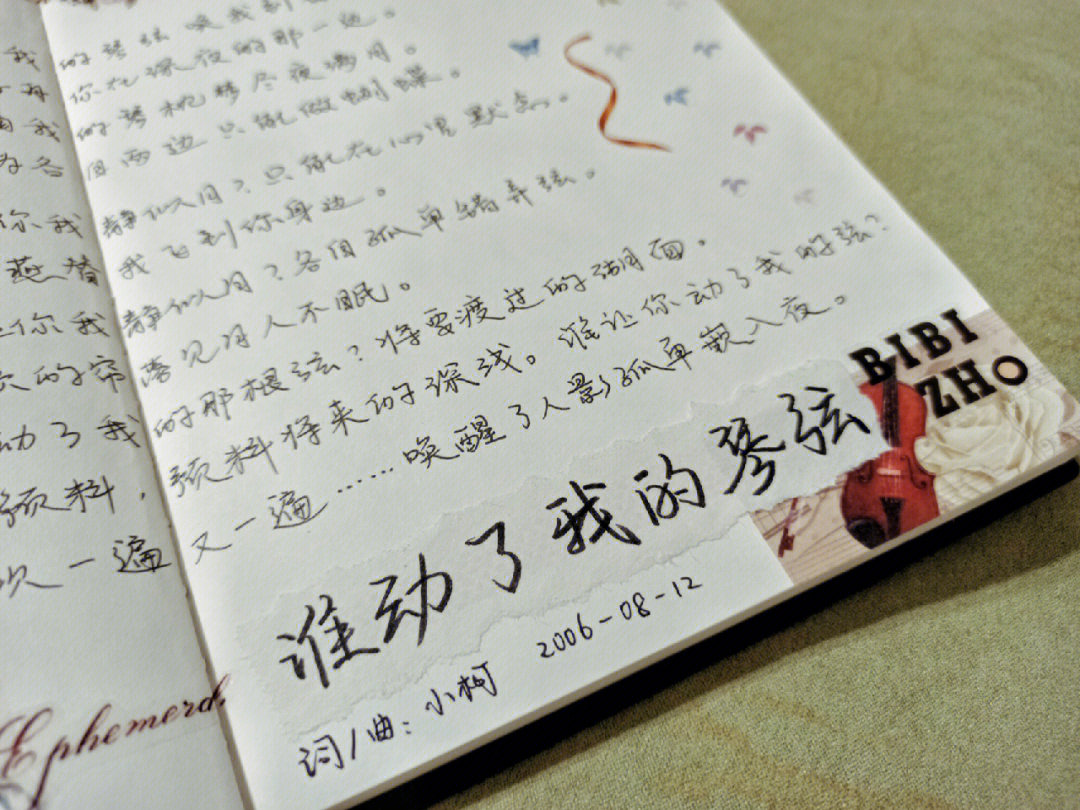 我
自我
你我
燕替
你我
的帘
动了我
预料,
吹一遍
的琴弦唤我到
你在深夜的那一边。
的琴枕梦尽夜满月。
月两边只能做蝴蝶。
静似月?只能在心里默念。
我飞到你身边。
静似月?各自孤单错弄弦。
落见月人不眠。
的那根弦?将要渡过的湖面。
预料将来的深浅。谁让你动了我的弦?
又一遍……唤醒了人影孤单歎入夜。
BIBI
ZHO
谁动了我的琴弦
2006-08-12
词/曲:小柯
Ephemeral